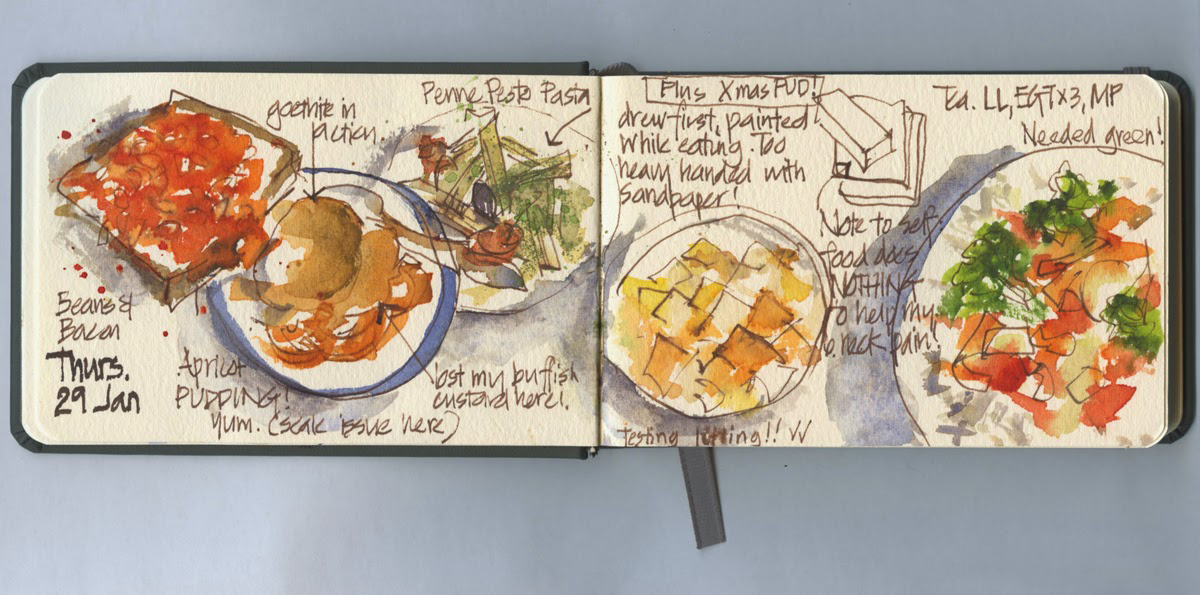 goethite in
action
Beans &
Bacon
Thurs.
29 Jan
Apricot
PUDDING!
Yum. (scale issue here)
lost my buffish
custard here!.
Penne Pesto Pasta
Plus Xmas PUD!
drew first, painted
while eating. Too
heavy handed with
sandpaper!
testing lifting!! VV
Note to self:
food does
NOTHING
to help my
neck pain!
Tea. LL, EGTx3, MP
Needed green!